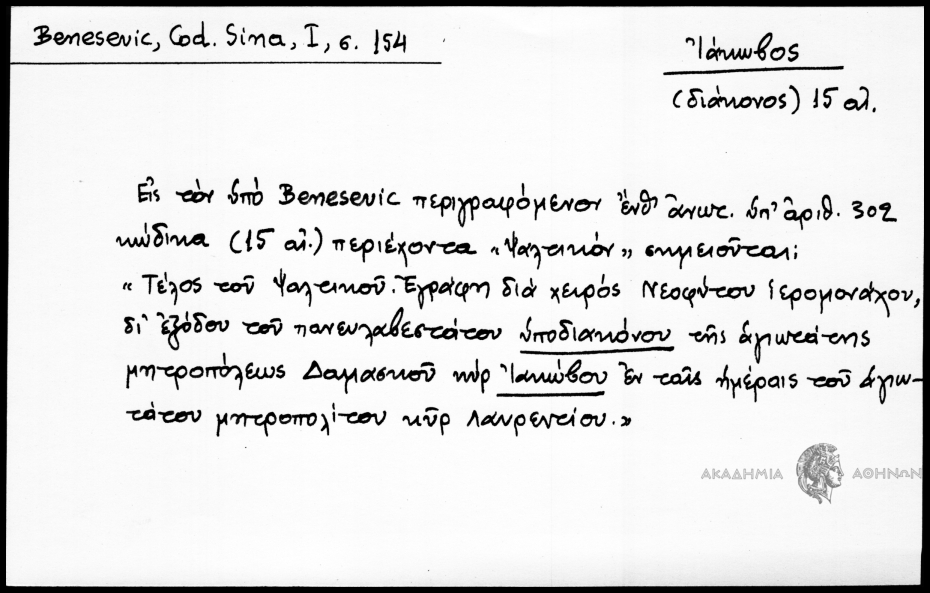 Benesevic, Cod. Sina, I, σ. 154
Ἰάκωβος
(διάκονος) 15 αἰ.
Εἰς τὸν ὑπὸ Benesevic περιγραφόμενον ἔνθ' ἄνωτ. ὑπ' ἀριθ. 302
κώδικα (15 αἰ.) περιέχοντα «Ψαλτικόν» σημειοῦται:
«Τέλος τοῦ Ψαλτικοῦ. Ἐγράφη διὰ χειρός Νεοφύτου ἱερομονάχου,
δι' ἐξόδου τοῦ πανευλαβεστάτου ὑποδιακόνου τῆς ἁγιωτάτης
μητροπόλεως Δαμασκοῦ κὺρ Ἰακώβου ἐν ταῖς ἡμέραις τοῦ ἁγιω-
τάτου μητροπολίτου κῦρ Λαυρεντίου.»
ΑΚΑΔΗΜΙΑ ΑΘΗΝΩΝ